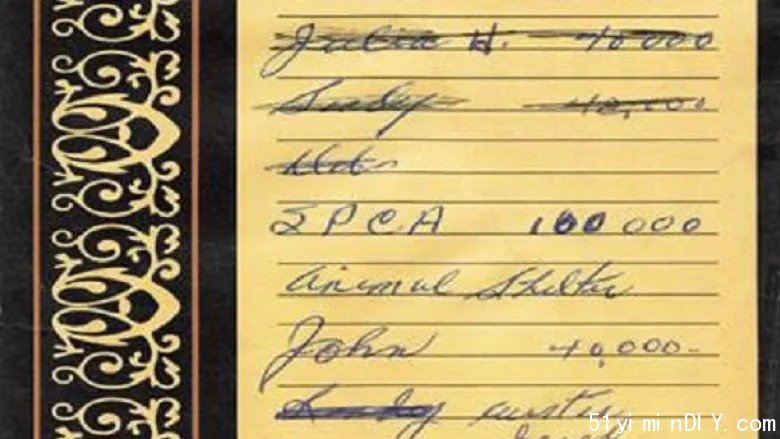 Julia H. 40000
40,000
SPCA 100 000
Animal Shelter
John 40,000-
51yiminDIY.com